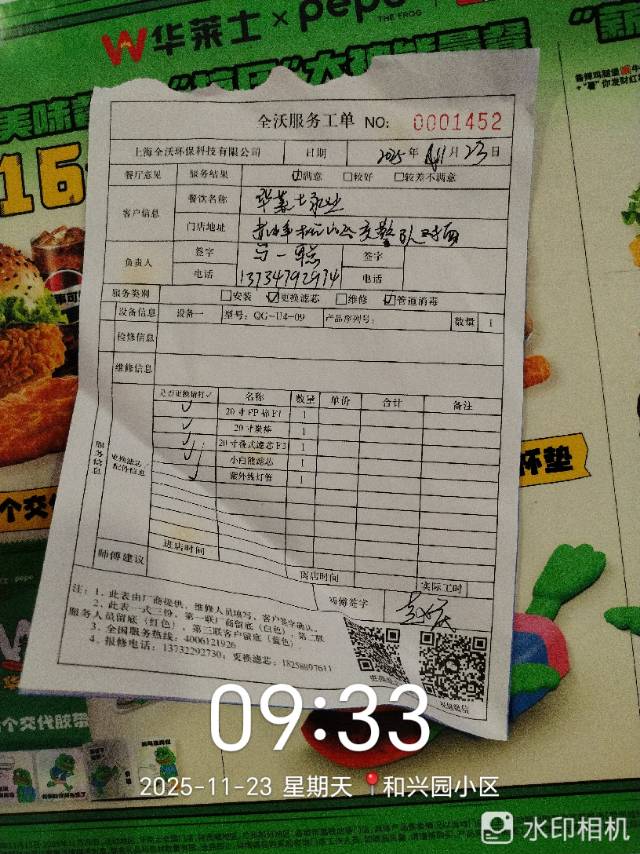 华莱士 × pepe
THE FROG
美味
16
全沃服务工单 NO: 0001452
上海全沃环保科技有限公司 日期 2025年 11月23日
餐厅意见 服务结果 ☑满意 □较好 □较差不满意
客户信息 餐饮名称 华莱士
门店地址
负责人 签字 签字
电话 13734792974 电话
服务类别 □安装 ☑更换滤芯 □维修 ☑管道消毒
设备信息 设备一 型号: QG-U4-09 产品序列号: 数量 1
检修信息
维修信息
服务信息
更换滤芯/配件信息
是否更换请打✓ 名称 数量 单价 合计 备注
✓ 20寸PP棉F1 1
✓ 20寸炭棒 1
✓ 20寸叠式滤芯F3 1
✓ 小白鲸滤芯 1
✓ 紫外线灯管 1
师傅建议 进店时间 离店时间 实际工时
师傅签字
注: 1. 此表由厂商提供, 维修人员填写, 客户签字确认。
2. 此表一式三份, 第一联厂商留底(白色), 第二联
服务人员留底(红色), 第三联客户留底(蓝色)
3. 全国服务热线: 4006121926
4. 报修电话: 13732292730, 更换滤芯: 18258897611
杯垫
个交代胶带
09:33
2025-11-23 星期天 和兴园小区
水印相机